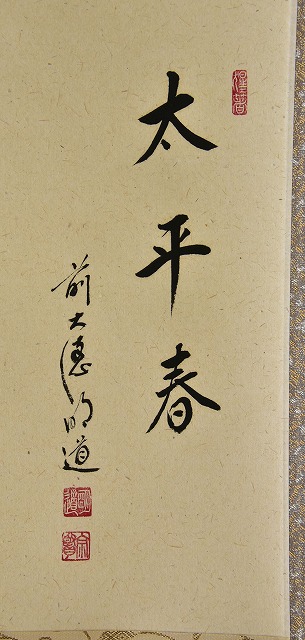 太平春
前大徳明道